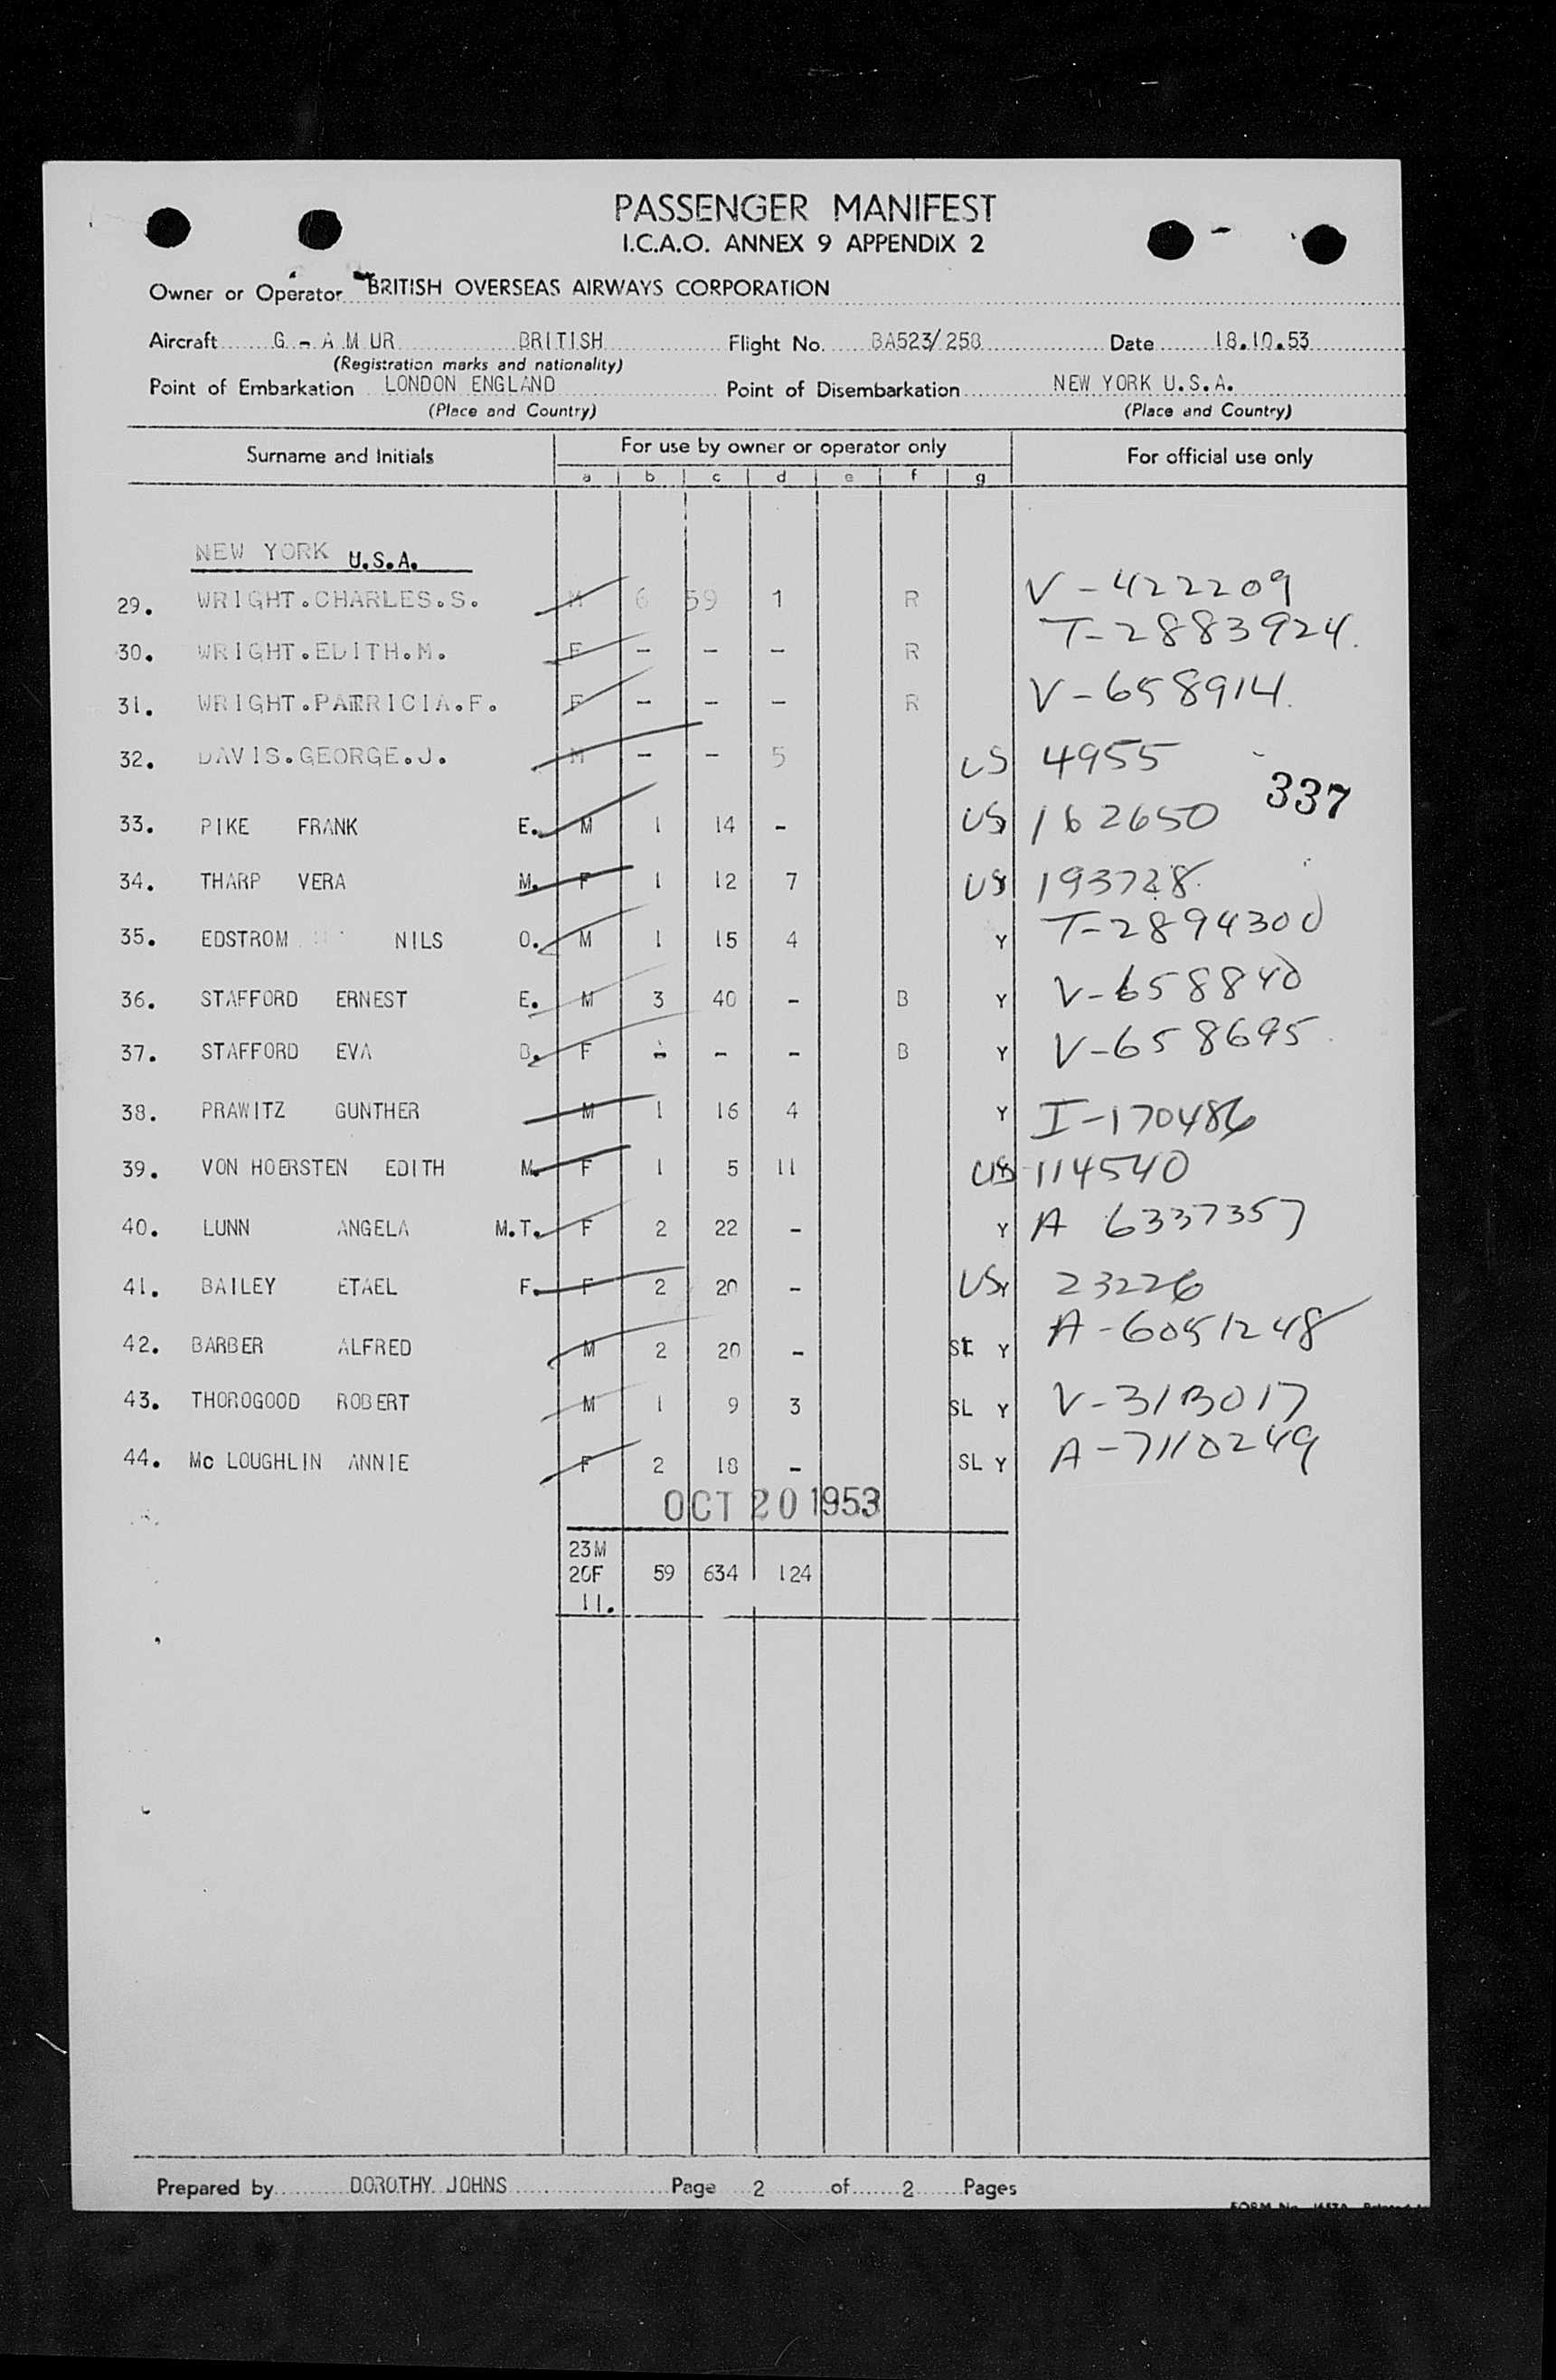 PASSENGER MANIFEST
I.C.A.O. ANNEX 9 APPENDIX 2
Owner or Operator BRITISH OVERSEAS AIRWAYS CORPORATION
Aircraft G - A M UR BRITISH Flight No. BA523/258 Date 18.10.53
(Registration marks and nationality)
Point of Embarkation LONDON ENGLAND Point of Disembarkation NEW YORK U.S.A.
(Place and Country) (Place and Country)
Surname and Initials For use by owner or operator only For official use only
a b c d e f g
NEW YORK U.S.A.
29. WRIGHT.CHARLES.S. M 6 59 1 R V-422209
30. WRIGHT.EDITH.M. F - - - R T-2883924.
31. WRIGHT.PATRICIA.F. F - - - R V-658914.
32. DAVIS.GEORGE.J. M - - 5 US 4955
337
33. PIKE FRANK E. M 1 14 - US 162650
34. THARP VERA M. F 1 12 7 US 193728
35. EDSTROM NILS O. M 1 15 4 Y T-2894300
36. STAFFORD ERNEST E. M 3 40 - B Y V-658840
37. STAFFORD EVA B. F - - - B Y V-658695
38. PRAWITZ GUNTHER M 1 16 4 Y I-170486
39. VON HOERSTEN EDITH M. F 1 5 11 US 114540
40. LUNN ANGELA M.T. F 2 22 - Y A 6337357
41. BAILEY ETAEL F. F 2 20 - US Y 23226
42. BARBER ALFRED M 2 20 - SL Y A-6051248
43. THOROGOOD ROBERT M 1 9 3 SL Y V-313017
44. Mc LOUGHLIN ANNIE F 2 18 - SL Y A-7110249
OCT 20 1953
23M
20F 59 634 124
11.
Prepared by DOROTHY JOHNS Page 2 of 2 Pages